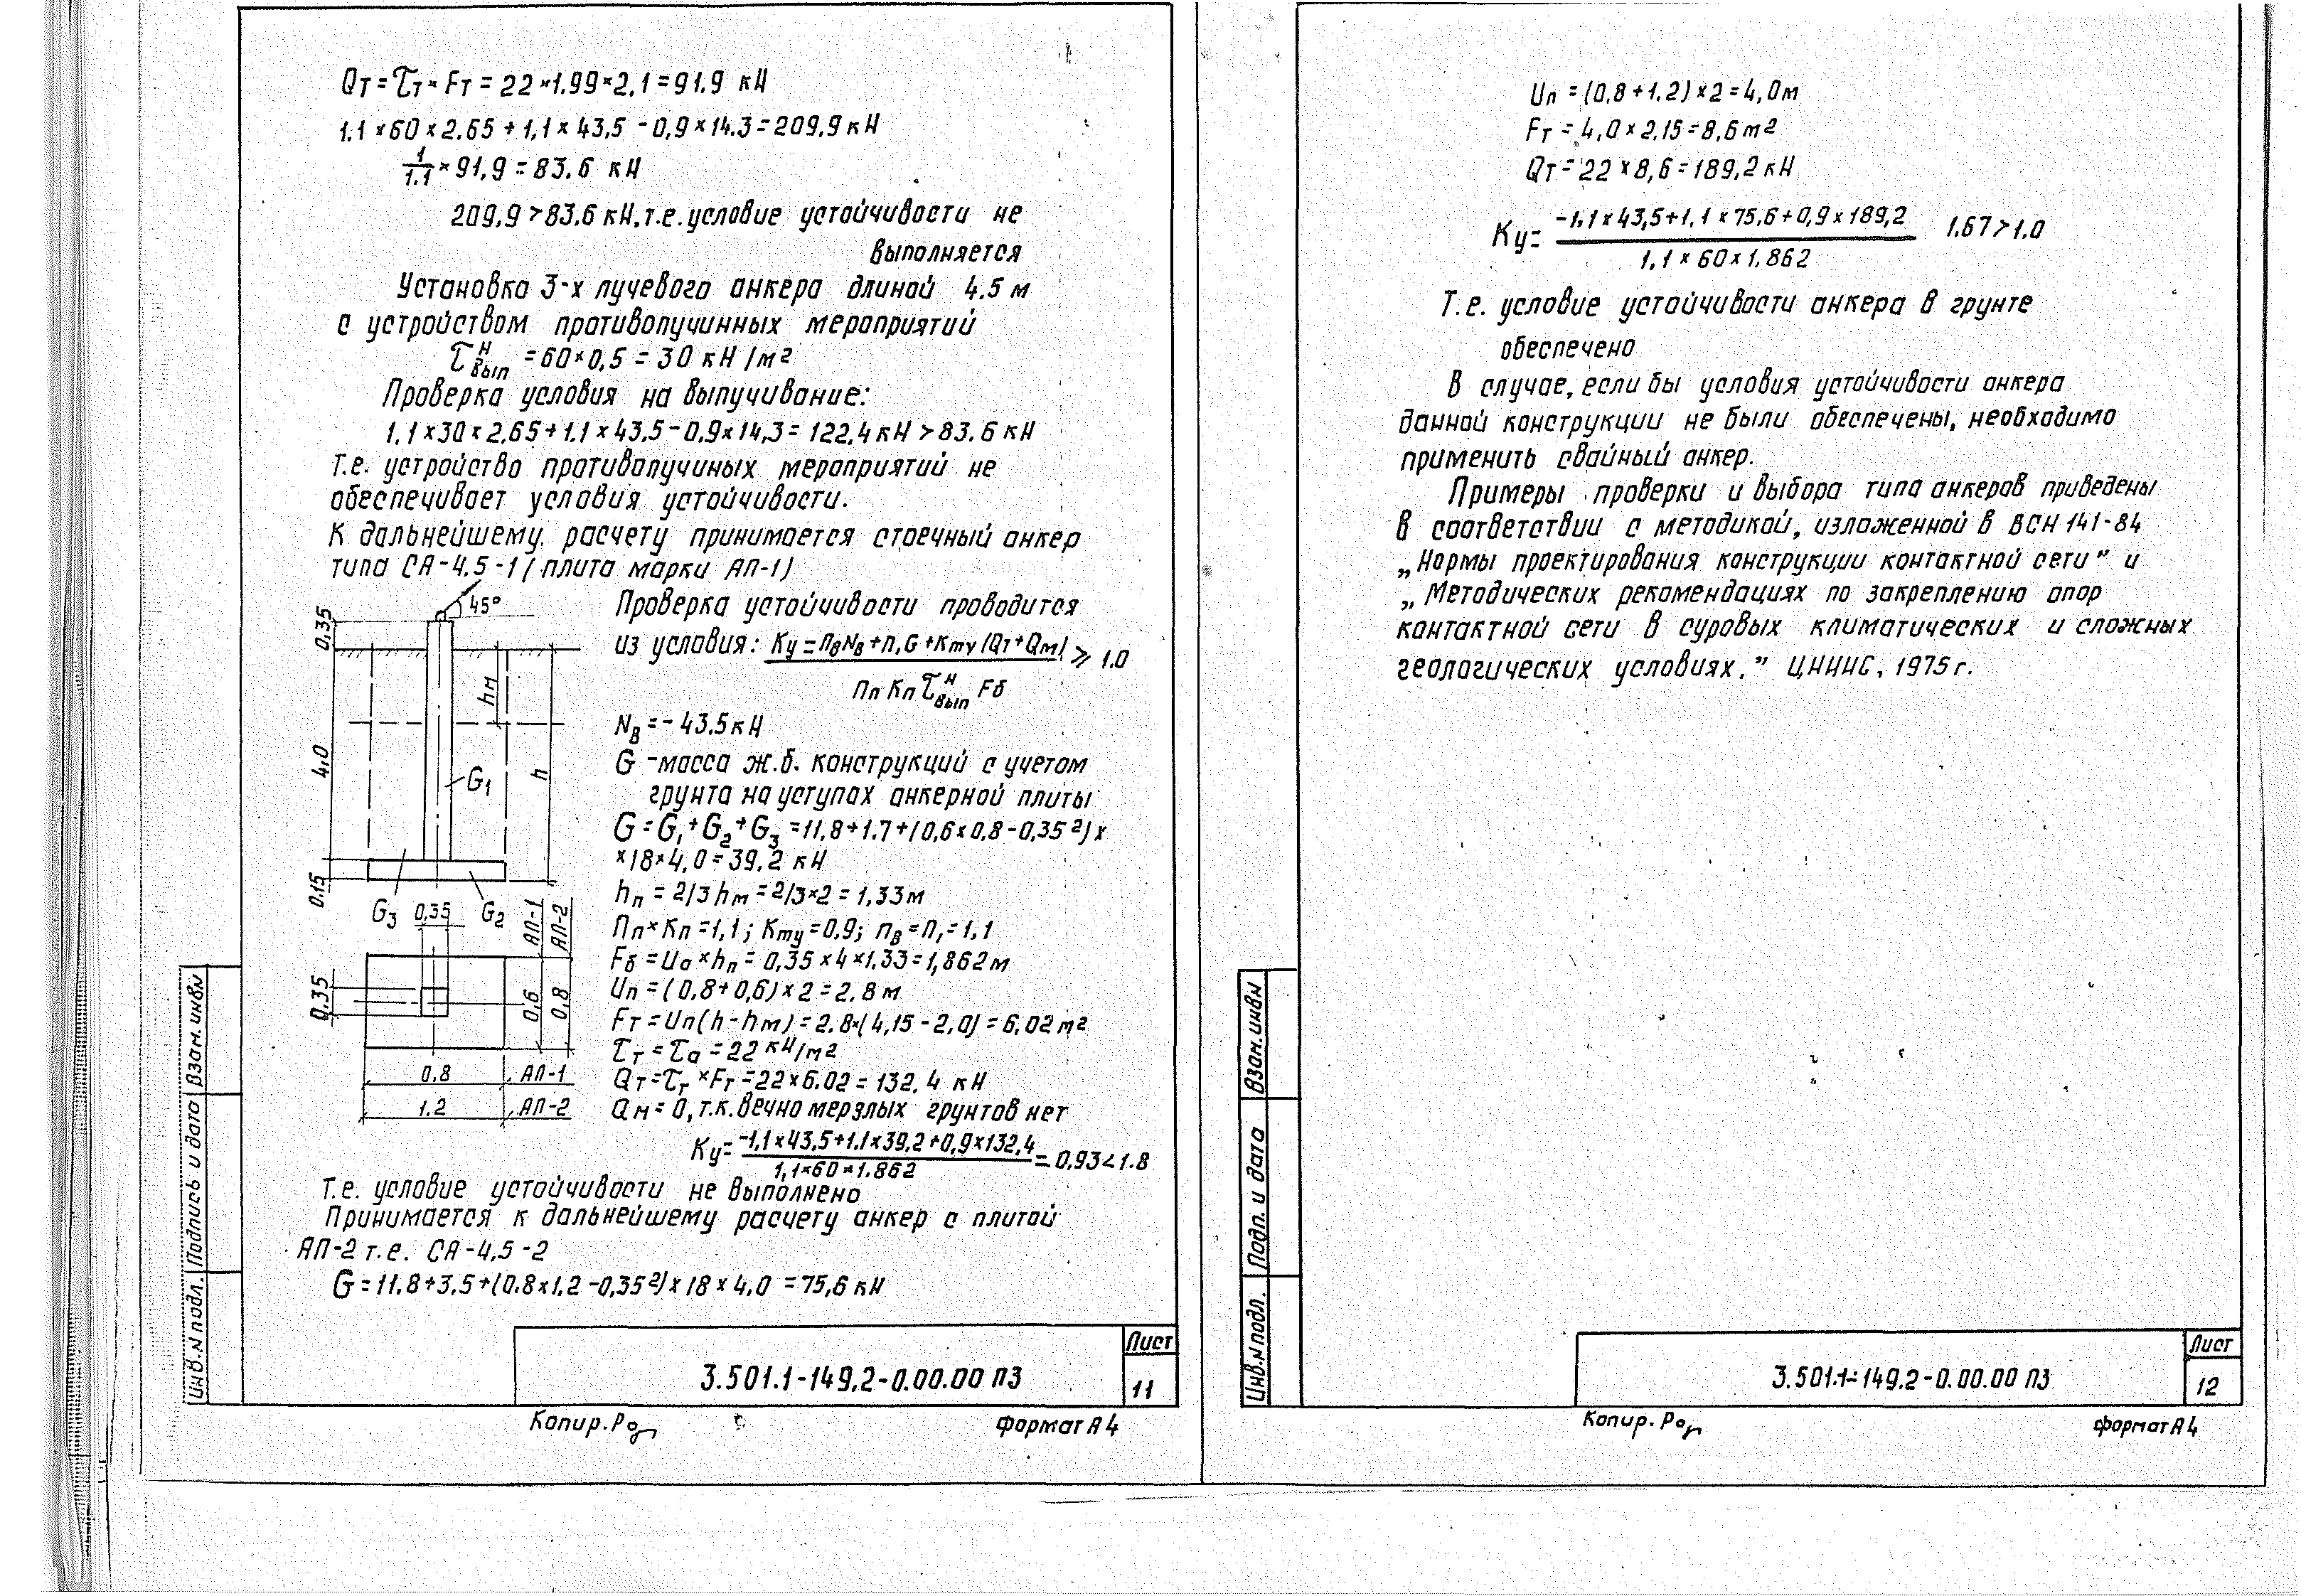 Qт = τт × Fт = 22 × 1.99 × 2.1 = 91.9 кН
1.1 × 60 × 2.65 + 1,1 × 43,5 - 0,9 × 14.3 = 209,9 кН
1/1.1 × 91,9 = 83.6 кН
209,9 > 83.6 кН, т.е. условие устойчивости не
выполняется
Установка 3-х лучевого анкера длиной 4.5 м
с устройством противопучинных мероприятий
τ н вып = 60 × 0,5 = 30 кН/м²
Проверка условия на выпучивание:
1.1 × 30 × 2,65 + 1.1 × 43,5 - 0,9 × 14,3 = 122,4 кН > 83.6 кН
Т.е. устройство противопучиных мероприятий не
обеспечивает условия устойчивости.
К дальнейшему расчету принимается стоечный анкер
типа СА-4.5-1 (плита марки АП-1)
45°
0.35
4,0
0.15
hм
h
G₁
G₃
0,35
G₂
АП-1
АП-2
0,35
0,6
0,8
0.8
АП-1
1.2
АП-2
Проверка устойчивости проводится
из условия: Kу = nвNв + n,G + Kту (Qт + Qм) / nп Kп τ н вып Fб ⩾ 1.0
Nв = - 43.5 кН
G - масса ж.б. конструкций с учетом
грунта на уступах анкерной плиты
G = G₁ + G₂ + G₃ = 11,8 + 1.7 + (0,6 × 0,8 - 0,35²) ×
× 18 × 4,0 = 39,2 кН
hп = 2/3 hм = 2/3 × 2 = 1,33 м
Пп × Кп = 1,1; Кту = 0,9; nв = n, = 1.1
Fб = Uа × hп = 0,35 × 4 × 1.33 = 1,862 м
Uп = (0,8 + 0,6) × 2 = 2.8 м
Fт = Uп (h - hм) = 2.8 × (4,15 - 2,0) = 6,02 м²
τт = τа = 22 кН/м²
Qт = τт × Fт = 22 × 6.02 = 132,4 кН
Qм = 0, т.к. вечно мерзлых грунтов нет
Kу = -1,1 × 43,5 + 1.1 × 39,2 + 0,9 × 132,4 / 1,1 × 60 × 1.862 = 0,93 < 1.8
Т.е. условие устойчивости не выполнено
Принимается к дальнейшему расчету анкер с плитой
АП-2 т.е. СА-4,5-2
G = 11.8 + 3,5 + (0.8 × 1,2 - 0,35²) × 18 × 4,0 = 75,6 кН
Взам. инвN
Подпись и дата
Инв. N подл.
3.501.1-149.2-0.00.00 ПЗ
Лист
11
Копир.
Формат А4
Uп = (0,8 + 1.2) × 2 = 4,0 м
Fт = 4,0 × 2,15 = 8,6 м²
Qт = 22 × 8,6 = 189,2 кН
Ку = -1,1 × 43,5 + 1,1 × 75,6 + 0,9 × 189,2 / 1,1 × 60 × 1.862 1.67 > 1.0
Т.е. условие устойчивости анкера в грунте
обеспечено
В случае, если бы условия устойчивости анкера
данной конструкции не были обеспечены, необходимо
применить свайный анкер.
Примеры проверки и выбора типа анкеров приведены
в соответствии с методикой, изложенной в ВСН 141-84
„Нормы проектирования конструкции контактной сети" и
„Методических рекомендациях по закреплению опор
контактной сети в суровых климатических и сложных
геологических условиях." ЦНИИС, 1975 г.
Взам. инвN
Подп. и дата
Инв. N подл.
3.501.1-149.2-0.00.00 ПЗ
Лист
12
Копир.
формат А4